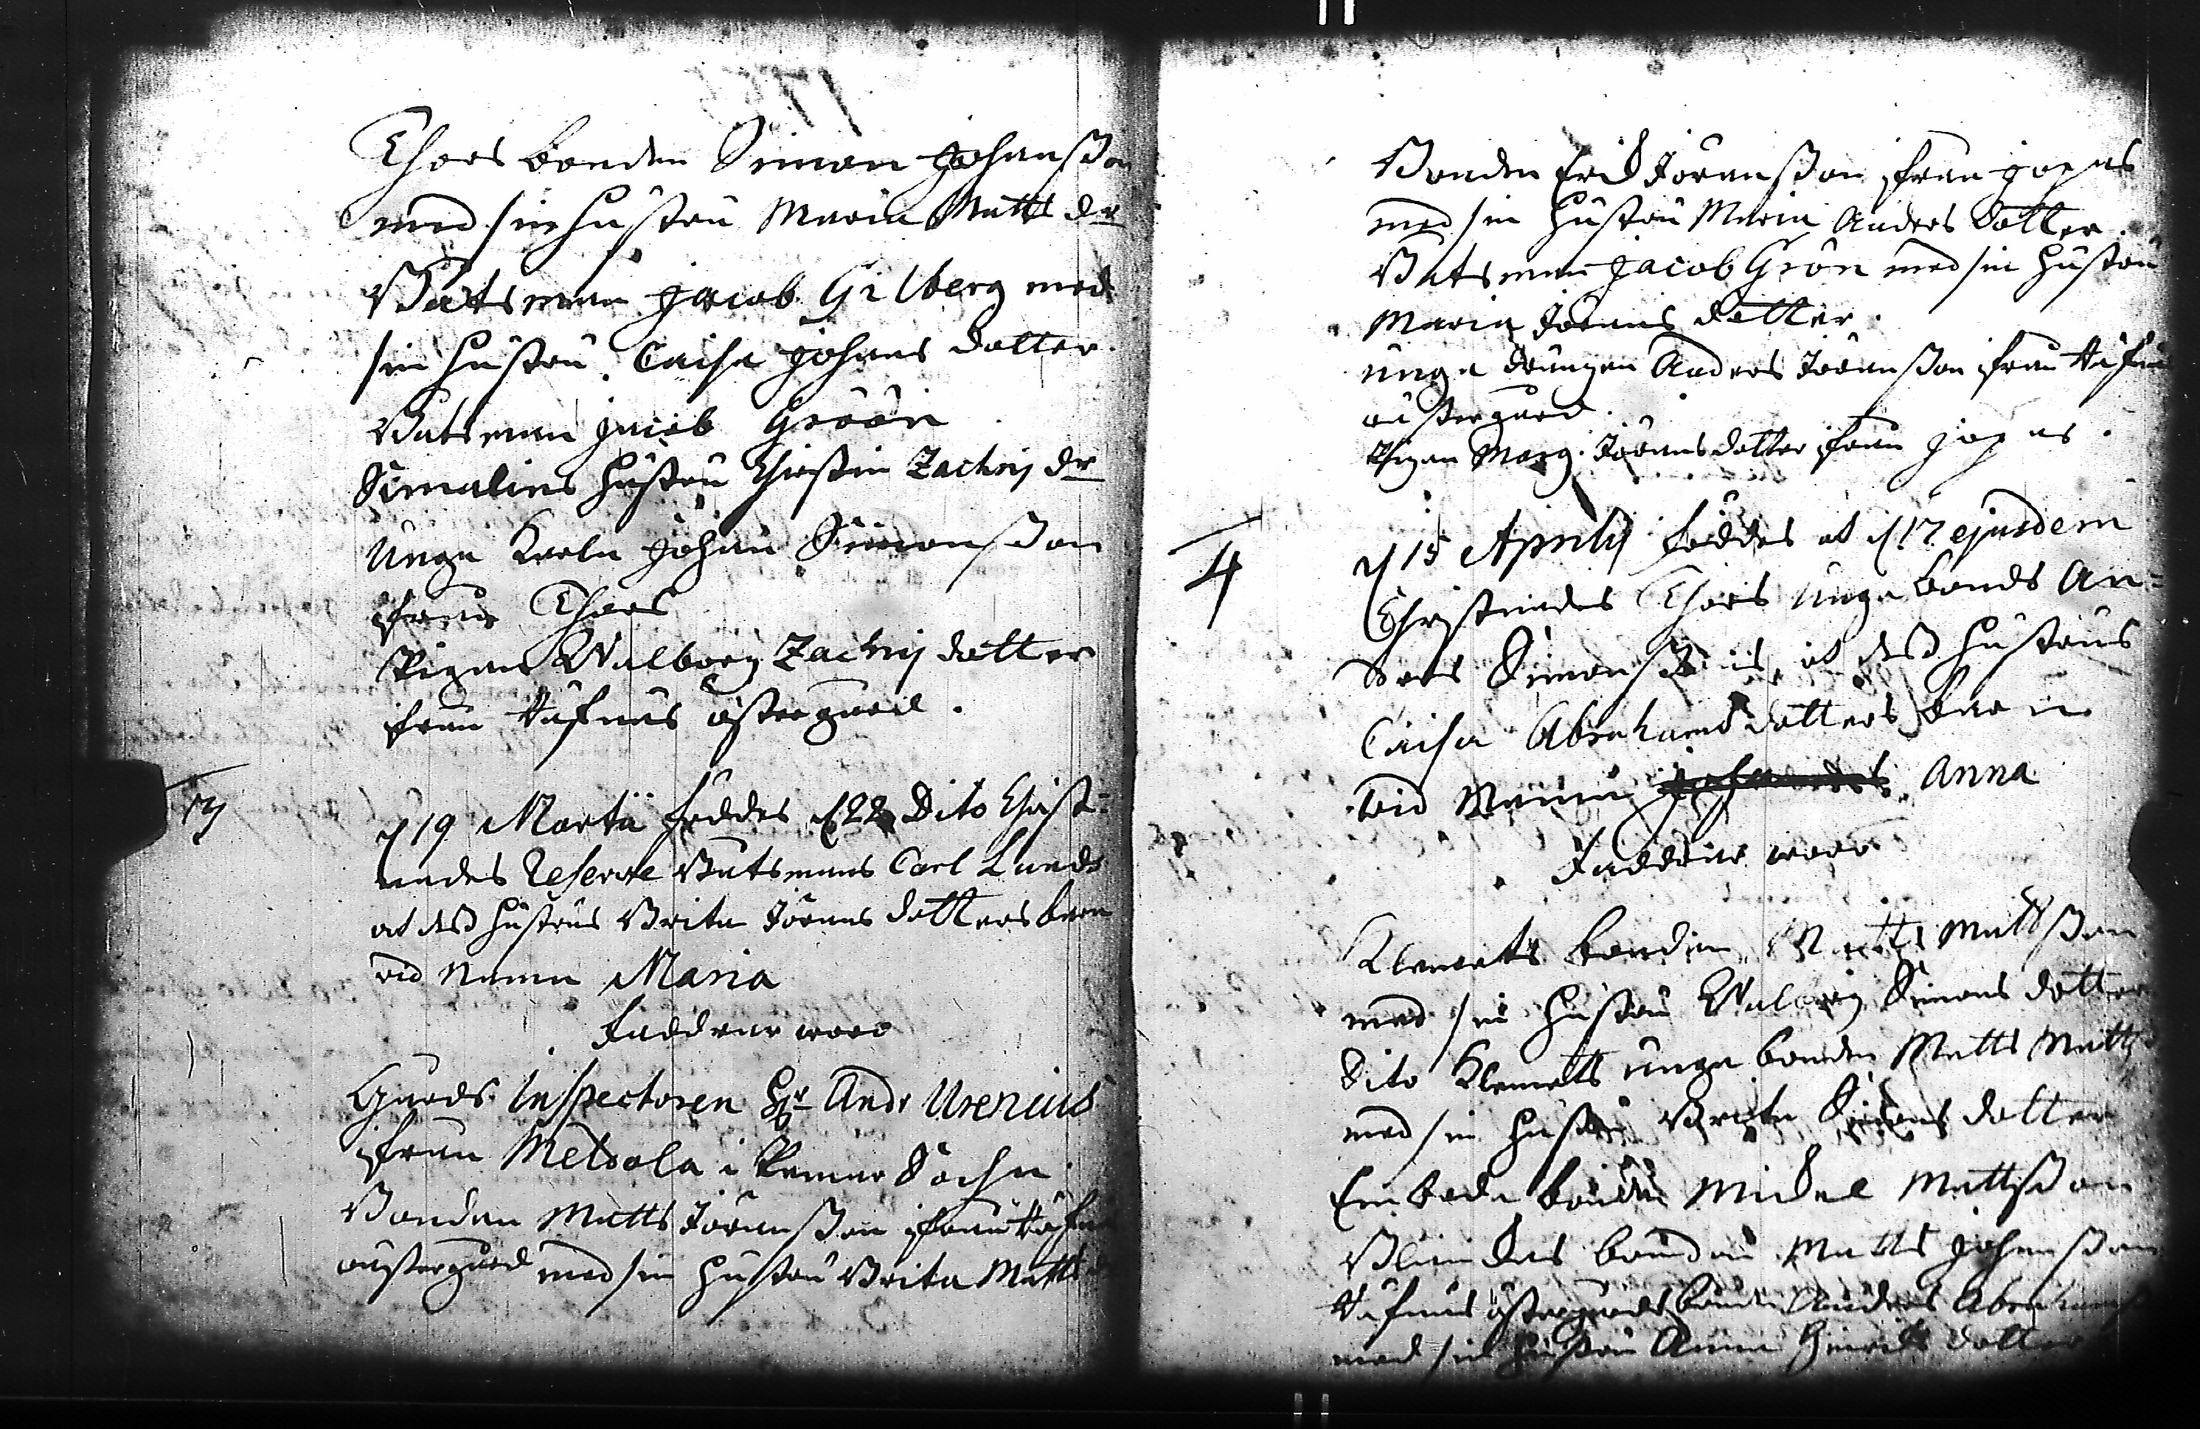 Thors bonden Simon Johansson
med sin hustru Maria Matts dr
Båtsman Jacob Gilberg med
sin hustru Caisa Johans dotter.
Båtsman Jacob Gröön
Simalins hustru Christin Zachrij dr
Unga Karln Johan Simonsson
ifrån Thors
Pigan Walborg Zachrij dotter
ifrån östergård.
3
d 19 Martii föddes d 22 Dito Christ-
nades Reserve Båtsmans Carl Lunds
et dess hustrus Brita Jörans dotters barn
vid namn Maria
Faddrar woro
Gårds Inspectoren Hr Andr Urenius
ifrån Meldola i Pemar Sochn
Bonden Matts Jöransson ifrån
östergård med sin hustru Brita Matts
Bonden Erich Jöransson ifrån
med sin hustru Maria Anders dotter.
Båtsman Jacob Grön med sin hustru
Maria Jörans dotter.
unga drängen Anders Jöransson ifrån
östergård.
Pigan Marg. Jörans dotter ifrån
4
d 15 Aprilij föddes et d 17 ejusdem
Christnades Thors unga bonds An-
ders Simonssons, et dess hustrus
Caisa Abrahams dotters barn
vid Namn Anna
Faddrar woro
Klemets bonden Matts Mattsson
med sin hustru Walborg Simons dotter
Dito Klemets unga bonden Matts Matts
med sin hustru Brita Simons dotter
bonden Michel Mattsson
bonden Matts Johansson
östergårds bonden Anders Abrahams
med sin hustru Anna Henrichs dotter